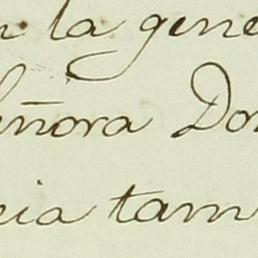 n la gene
eñora Do
cia tam